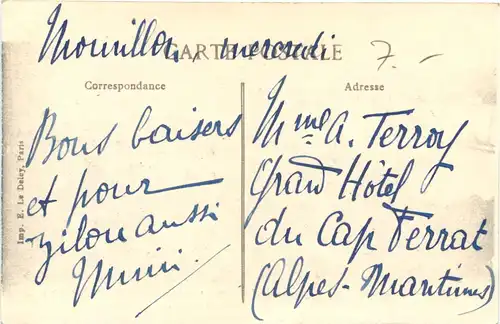 Mourillon, mercredi
CARTE POSTALE
7.-
Correspondance
Adresse
Bons baisers
et pour
zilou aussi
Mimi.
Mme A. Terroy
Grand Hôtel
du Cap Ferrat
(Alpes-Maritimes)
Imp. E. Le Deley, Paris